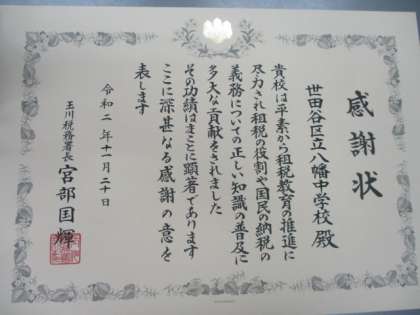 感謝状
世田谷区立八幡中学校 殿
貴校は平素から租税教育の推進に
尽力され租税の役割や国民の納税の
義務についての正しい知識の普及に
多大な貢献をされました
その功績はまことに顕著であります
ここに深甚なる感謝の意を
表します
令和二年十一月二十日
玉川税務署長 宮部国輝